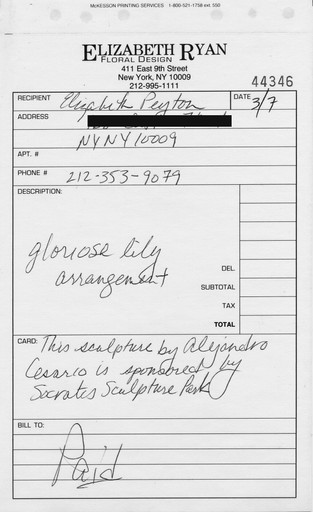 McKESSON PRINTING SERVICES 1-800-521-1758 ext. 550
ELIZABETH RYAN
FLORAL DESIGN
411 East 9th Street
New York, NY 10009
212-995-1111
44346
RECIPIENT Elizabeth Peyton DATE 3/7
ADDRESS
NYNY 10009
APT. #
PHONE # 212-353-9079
DESCRIPTION:
gloriose lily
arrangement
DEL.
SUBTOTAL
TAX
TOTAL
CARD: This sculpture by Alejandro
Cesarco is sponsored by
Socrates Sculpture Park
BILL TO:
Paid